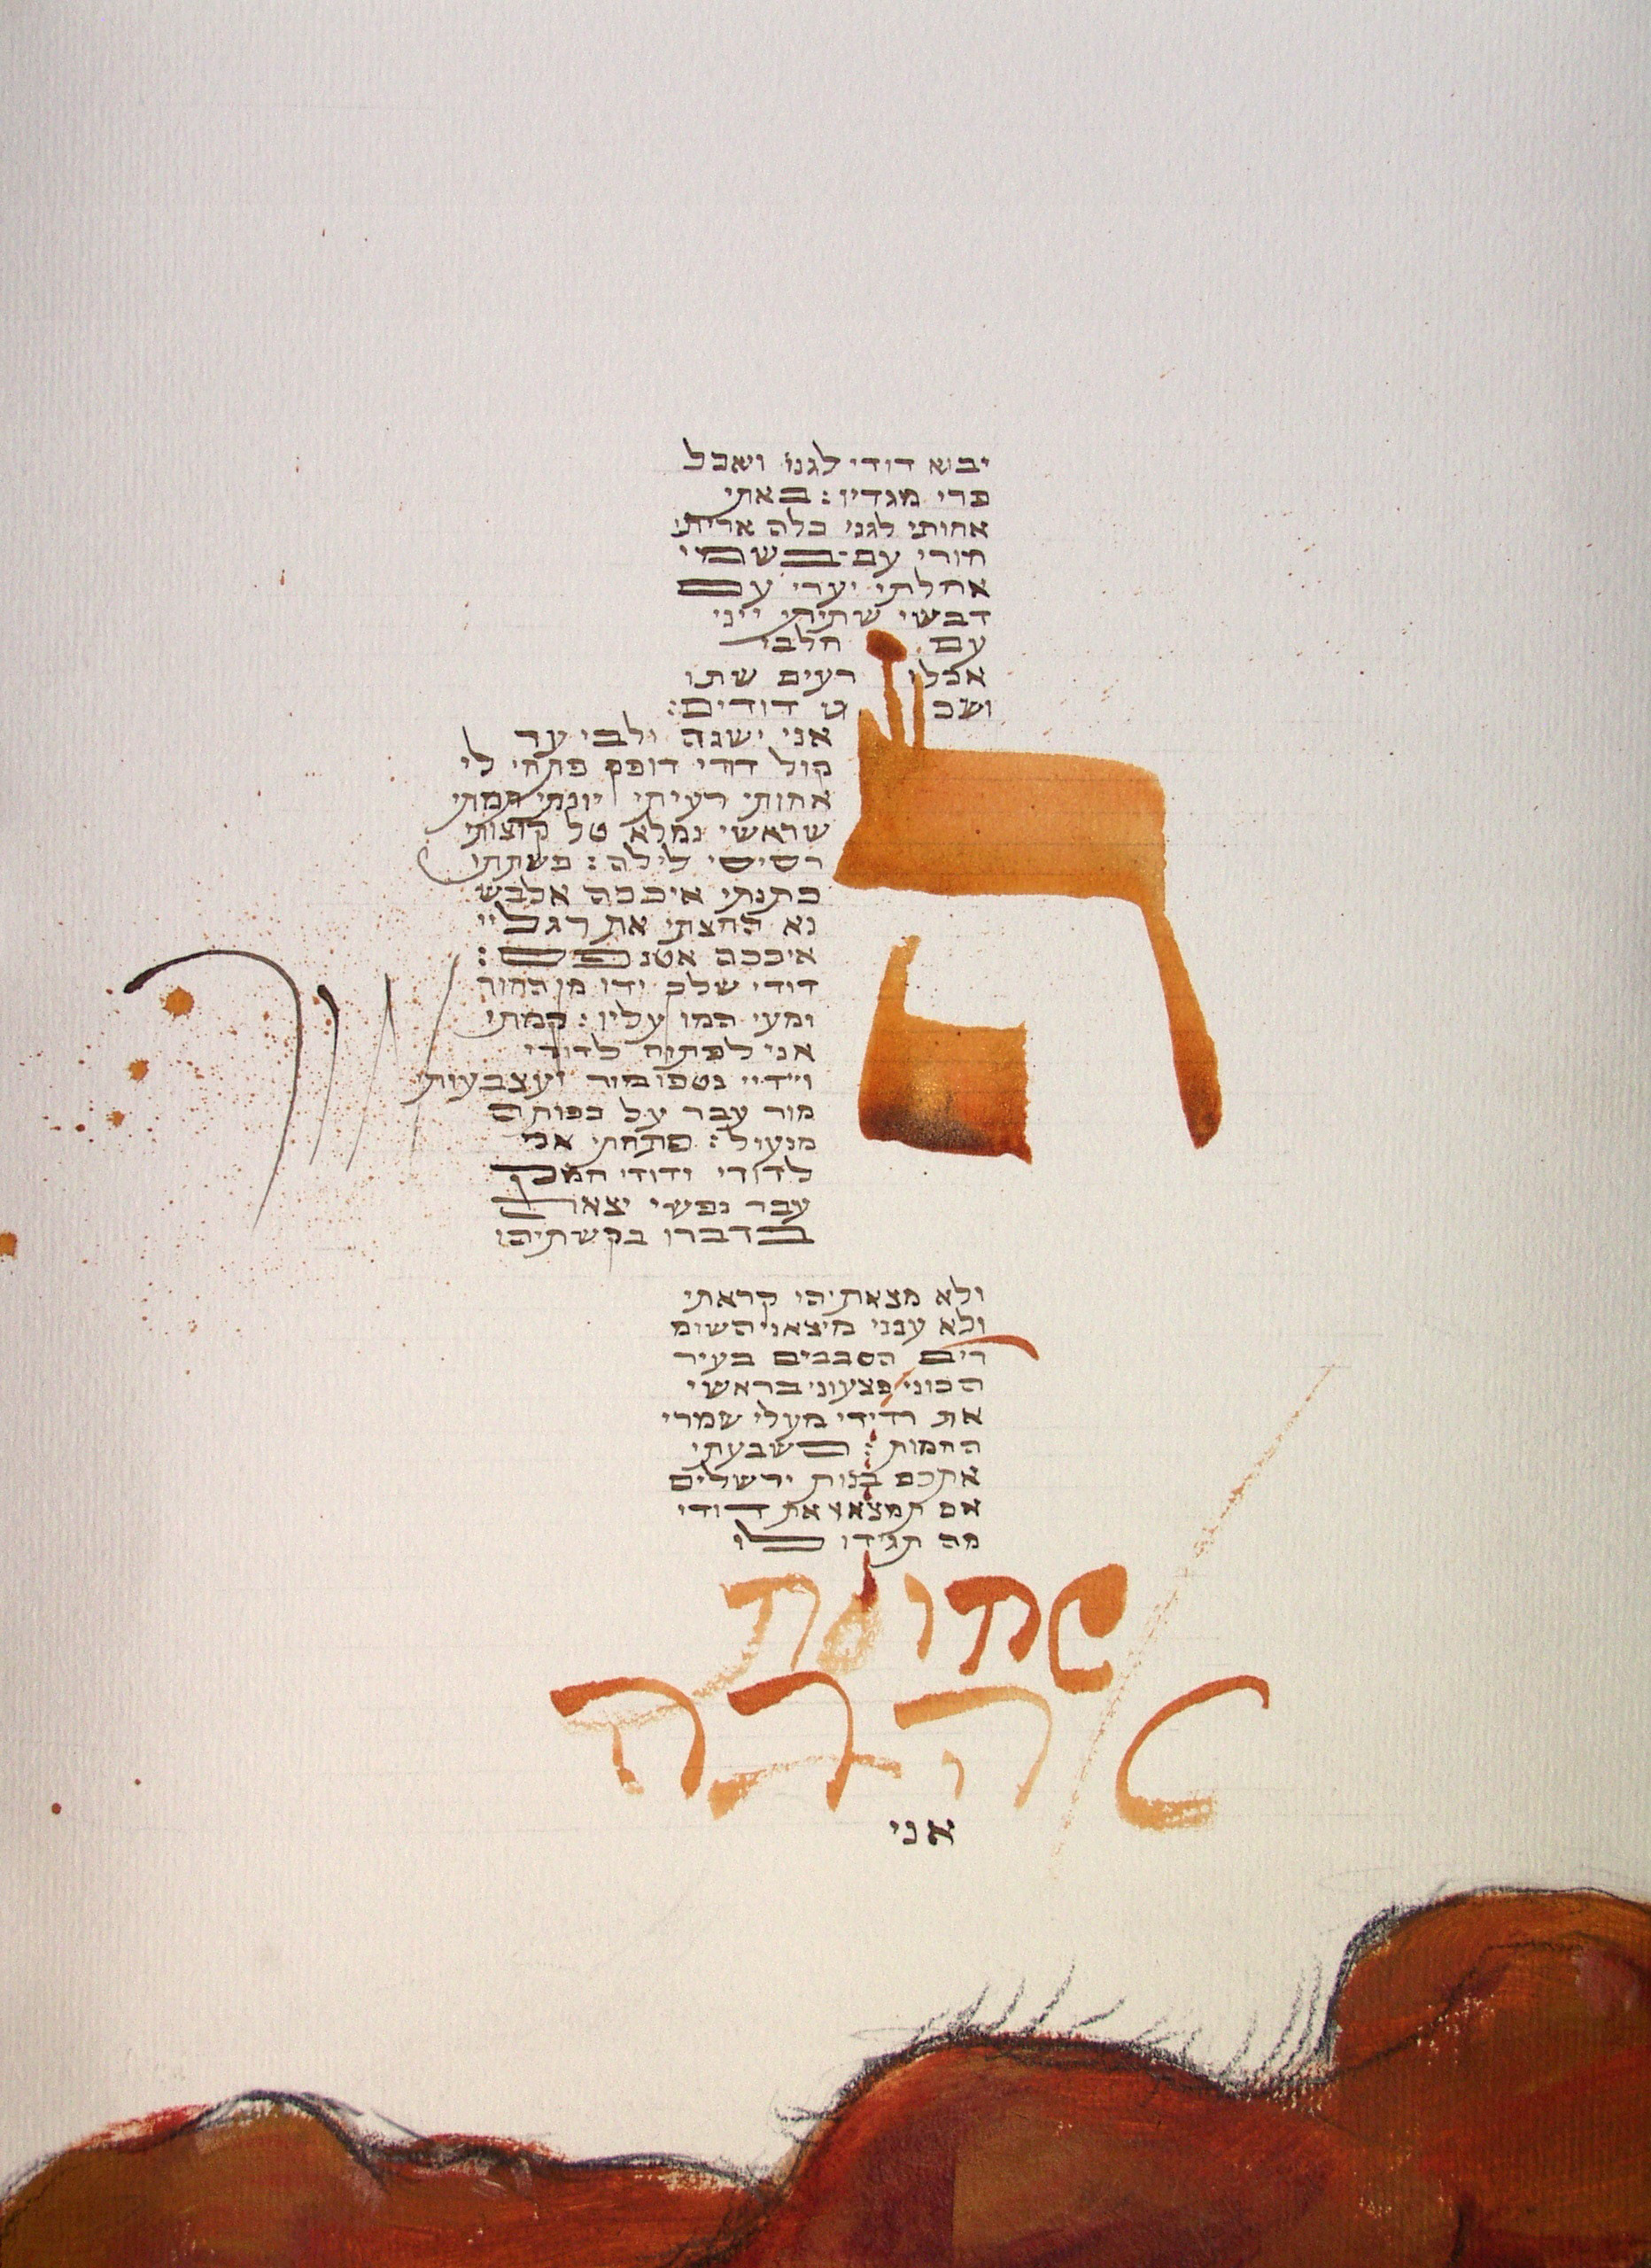 יבוא דודי לגנו ואכל
פרי מגדיו: באתי
אחותי לגני כלה אריתי
מורי עם בשמי
אכלתי יערי עם
דבשי שתיתי ייני
עם חלבי
אכלו רעים שתו
ושכ ט דודים:
אני ישנה ולבי ער
קול דודי דופק פתחי לי
אחותי רעיתי יונתי תמתי
שראשי נמלא טל קוצותי
רסיסי לילה: פשטתי
כתנתי איככה אלבש
נא רחצתי את רגליי
איככם אטנפם:
דודי שלח ידו מן החור
ומעי המו עליו: קמתי
אני לפתוח לדודי
וידיי נטפו מור ועצבעותי
מור עבר על כפות ה
מנעול: פתחתי אני
לדודי ודודי חמק
עבר נפשי יצאה
בדברו בקשתיהו
ה
ולא מצאתיהו קראתי
ולא ענני מיצאני השומ
רים הסבבים בעיר
הכוני פצעוני בראשי
את רדידי מעלי שמרי
החמות: השבעתי
אתכם בנות ירשלים
אם תמצאו את דודי
מה תגידו לו
שחולת
אהבה
אני